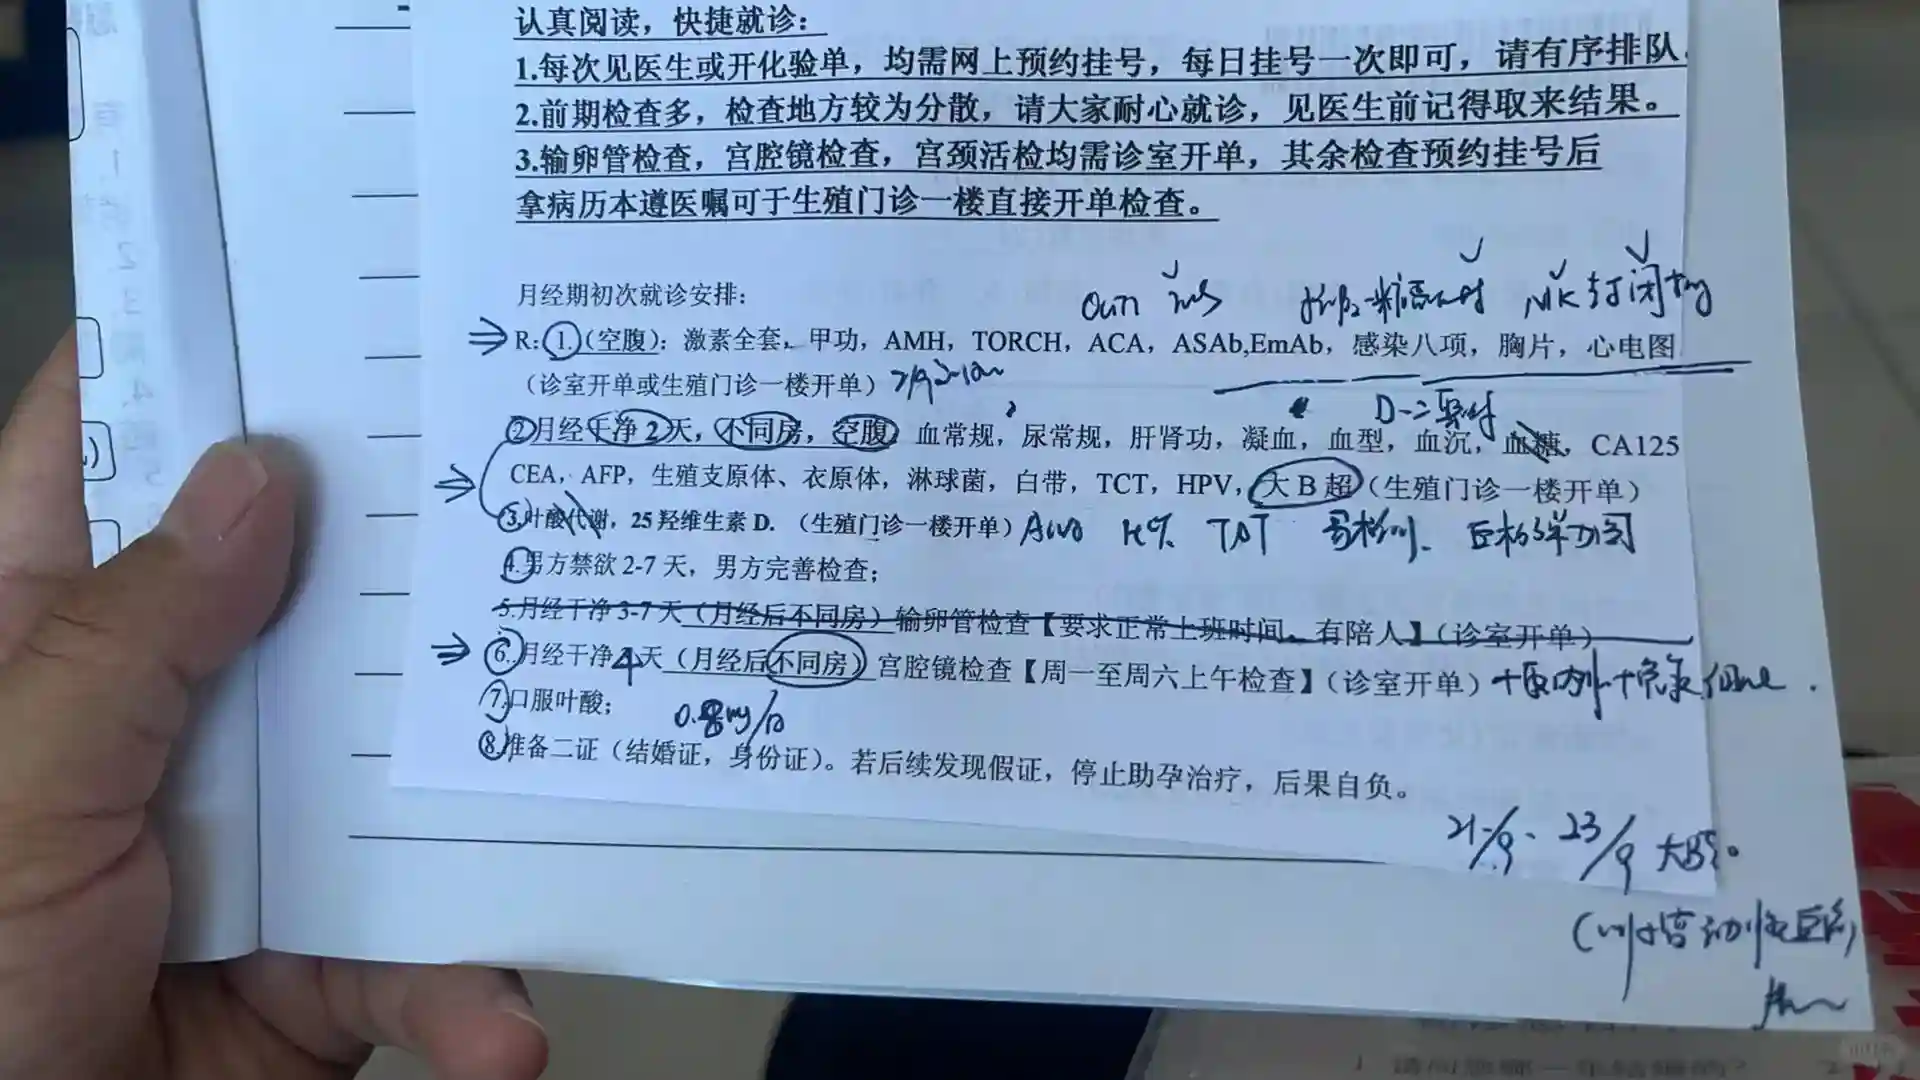 认真阅读，快捷就诊：
1.每次见医生或开化验单，均需网上预约挂号，每日挂号一次即可，请有序排队
2.前期检查多，检查地方较为分散，请大家耐心就诊，见医生前记得取来结果。
3.输卵管检查，宫腔镜检查，宫颈活检均需诊室开单，其余检查预约挂号后
拿病历本遵医嘱可于生殖门诊一楼直接开单检查。
月经期初次就诊安排：
R：1.（空腹）：激素全套，甲功，AMH，TORCH，ACA，ASAb,EmAb，感染八项，胸片，心电图
（诊室开单或生殖门诊一楼开单）
D-二聚体
②月经干净2天，不同房，空腹 血常规，尿常规，肝肾功，凝血，血型，血沉，血糖，CA125
CEA，AFP，生殖支原体、衣原体，淋球菌，白带，TCT，HPV，大B超（生殖门诊一楼开单）
③.叶酸代谢，25羟维生素D.（生殖门诊一楼开单）
4.男方禁欲2-7天，男方完善检查；
5.月经干净3-7天（月经后不同房）输卵管检查【要求正常上班时间，有陪人】（诊室开单）
6.月经干净4天（月经后不同房）宫腔镜检查【周一至周六上午检查】（诊室开单）
7.口服叶酸； 0.8mg/日
8.准备二证（结婚证，身份证）。若后续发现假证，停止助孕治疗，后果自负。
21/9、23/9 大B超。